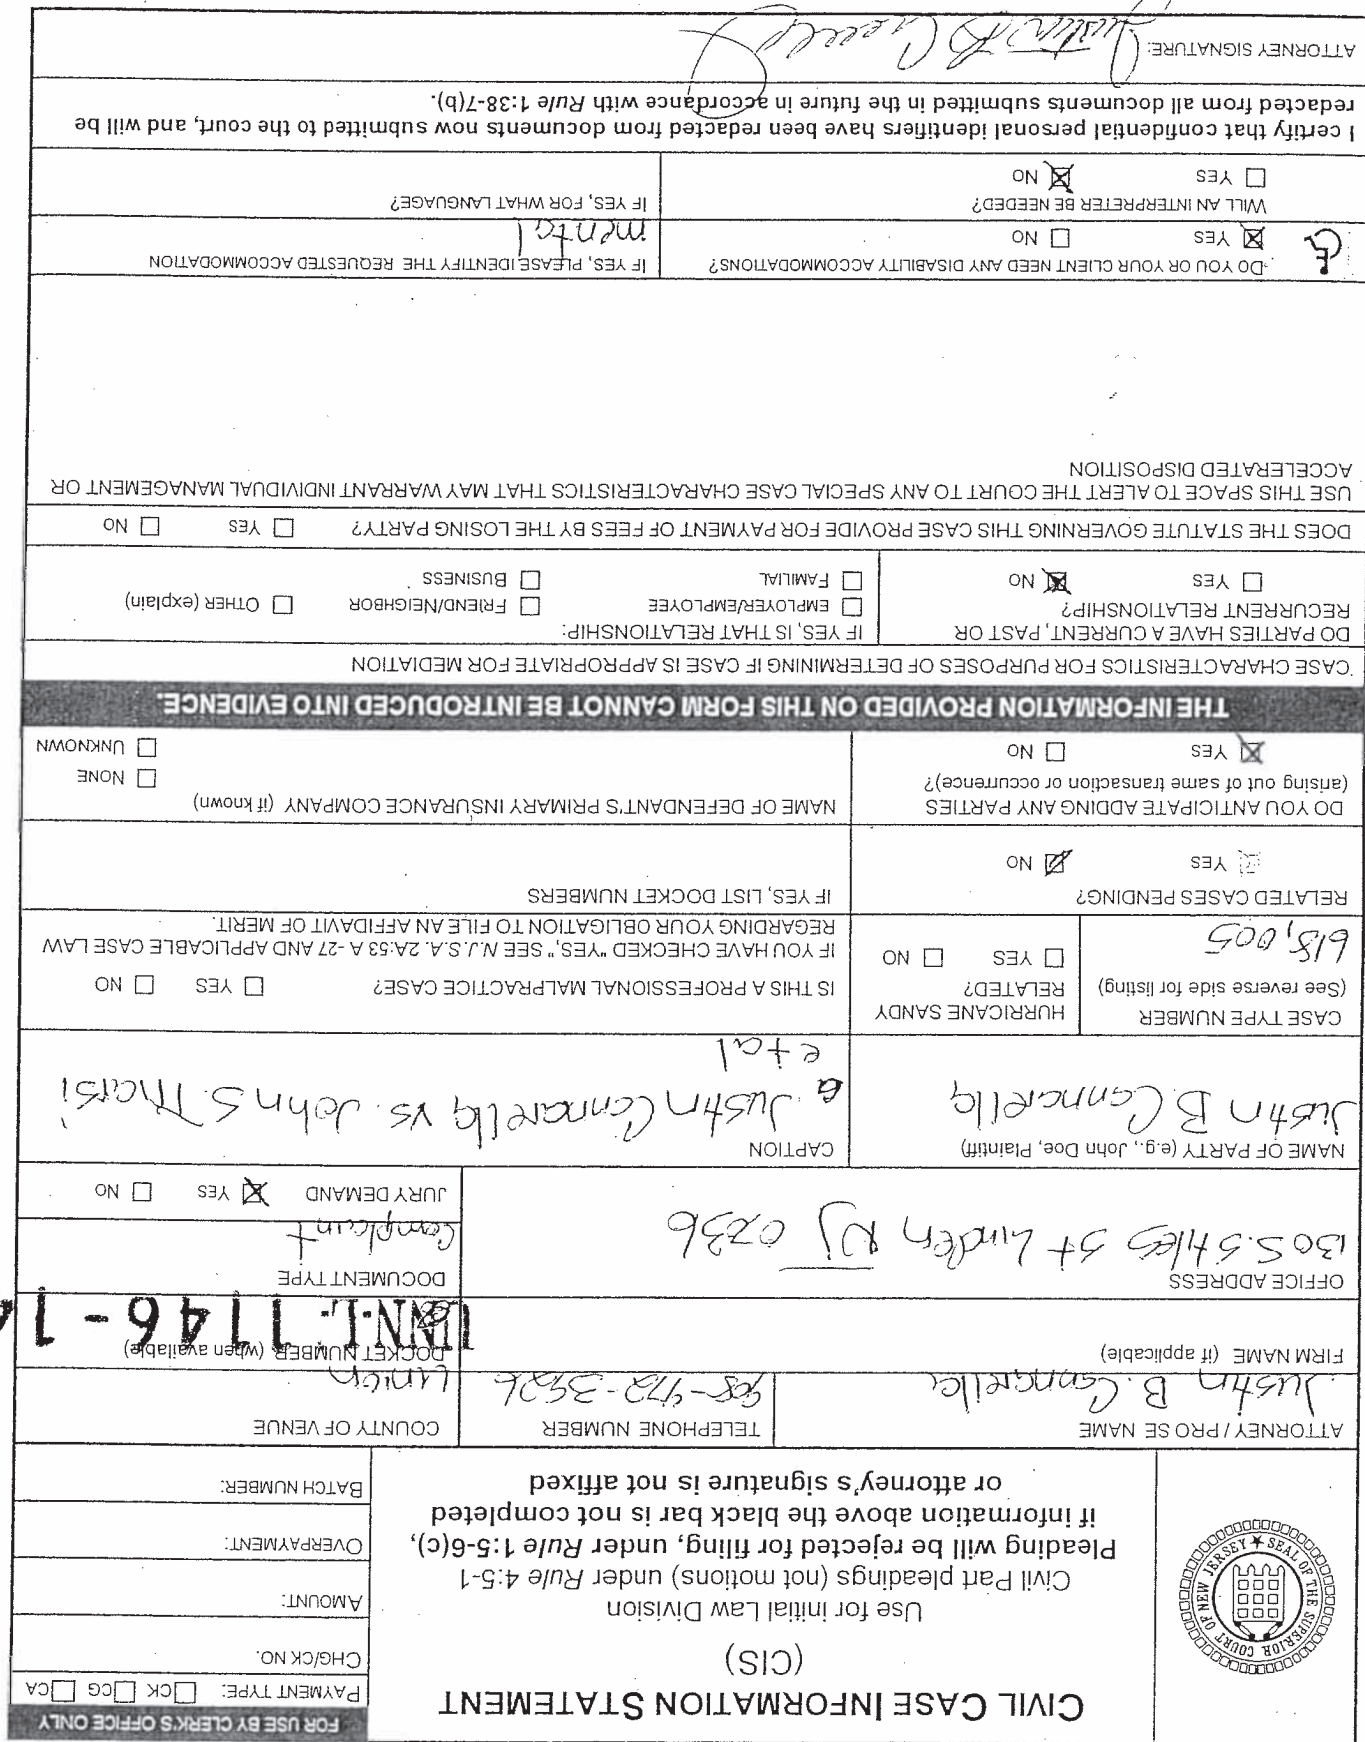 CIVIL CASE INFORMATION STATEMENT
(CIS)
Use for initial Law Division
Civil Part pleadings (not motions) under Rule 4:5-1
Pleading will be rejected for filing, under Rule 1:5-6(c),
if information above the black bar is not completed
or attorney's signature is not affixed
SEAL OF THE SUPERIOR COURT OF NEW JERSEY
FOR USE BY CLERK'S OFFICE ONLY
PAYMENT TYPE: ☐ CK ☐ CG ☐ CA
CHG/CK NO.
AMOUNT:
OVERPAYMENT:
BATCH NUMBER:
ATTORNEY / PRO SE NAME
Justin B. Cannarella
TELEPHONE NUMBER
908-472-3926
COUNTY OF VENUE
Union
FIRM NAME (if applicable)
DOCKET NUMBER (when available)
UNN-L-1146-1
OFFICE ADDRESS
130 S. Stiles St Linden NJ 07036
DOCUMENT TYPE
Complaint
JURY DEMAND ☒ YES ☐ NO
NAME OF PARTY (e.g., John Doe, Plaintiff)
Justin B. Cannarella
CAPTION
Justin Cannarella vs. John S.
et al
CASE TYPE NUMBER
(See reverse side for listing)
618, 005
HURRICANE SANDY
RELATED?
☐ YES ☐ NO
IS THIS A PROFESSIONAL MALPRACTICE CASE? ☐ YES ☐ NO
IF YOU HAVE CHECKED "YES," SEE N.J.S.A. 2A:53 A -27 AND APPLICABLE CASE LAW
REGARDING YOUR OBLIGATION TO FILE AN AFFIDAVIT OF MERIT.
RELATED CASES PENDING?
☐ YES ☒ NO
IF YES, LIST DOCKET NUMBERS
DO YOU ANTICIPATE ADDING ANY PARTIES
(arising out of same transaction or occurrence)?
☒ YES ☐ NO
NAME OF DEFENDANT'S PRIMARY INSURANCE COMPANY (if known)
☐ NONE
☐ UNKNOWN
THE INFORMATION PROVIDED ON THIS FORM CANNOT BE INTRODUCED INTO EVIDENCE.
CASE CHARACTERISTICS FOR PURPOSES OF DETERMINING IF CASE IS APPROPRIATE FOR MEDIATION
DO PARTIES HAVE A CURRENT, PAST OR
RECURRENT RELATIONSHIP?
☐ YES ☒ NO
IF YES, IS THAT RELATIONSHIP:
☐ EMPLOYER/EMPLOYEE ☐ FRIEND/NEIGHBOR ☐ OTHER (explain)
☐ FAMILIAL ☐ BUSINESS
DOES THE STATUTE GOVERNING THIS CASE PROVIDE FOR PAYMENT OF FEES BY THE LOSING PARTY? ☐ YES ☐ NO
USE THIS SPACE TO ALERT THE COURT TO ANY SPECIAL CASE CHARACTERISTICS THAT MAY WARRANT INDIVIDUAL MANAGEMENT OR
ACCELERATED DISPOSITION
DO YOU OR YOUR CLIENT NEED ANY DISABILITY ACCOMMODATIONS?
☒ YES ☐ NO
IF YES, PLEASE IDENTIFY THE REQUESTED ACCOMMODATION
mental
WILL AN INTERPRETER BE NEEDED?
☐ YES ☒ NO
IF YES, FOR WHAT LANGUAGE?
I certify that confidential personal identifiers have been redacted from documents now submitted to the court, and will be
redacted from all documents submitted in the future in accordance with Rule 1:38-7(b).
ATTORNEY SIGNATURE:
Justin B